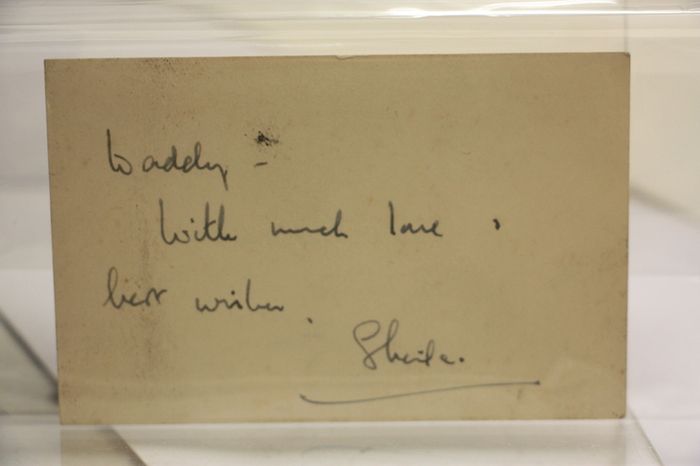 Waddy -
With much love &
best wishes.
Sheila.